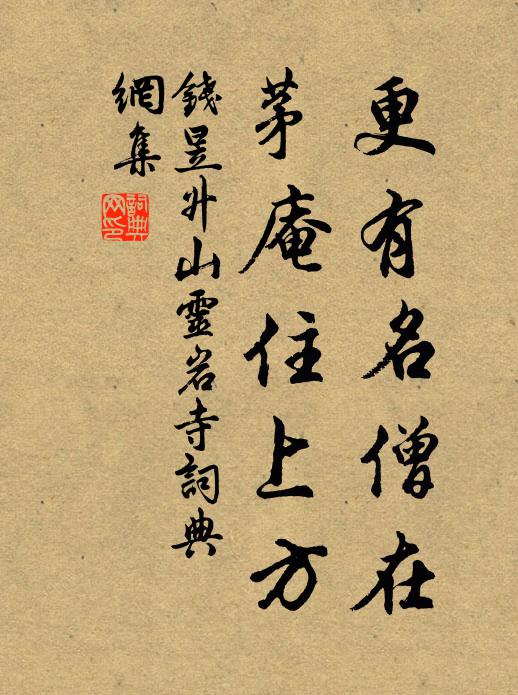 更有名僧在
茅庵住上方
錢昱升山靈岩寺詞典
網集
詞典
网印